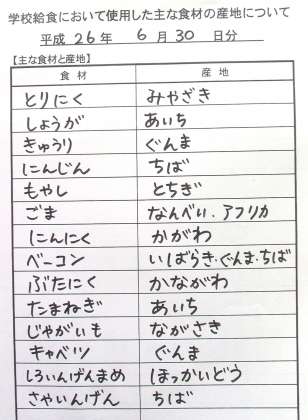 学校給食において使用した主な食材の産地について
平成 26 年 6 月 30 日分
【主な食材と産地】
食 材 産 地
とりにく みやざき
しょうが あいち
きゅうり ぐんま
にんじん ちば
もやし とちぎ
ごま なんべい、アフリカ
にんにく かがわ
ベーコン いばらき・ぐんま・ちば
ぶたにく かながわ
たまねぎ あいち
じゃがいも ながさき
キャベツ ぐんま
しろいんげんまめ ほっかいどう
さやいんげん ちば